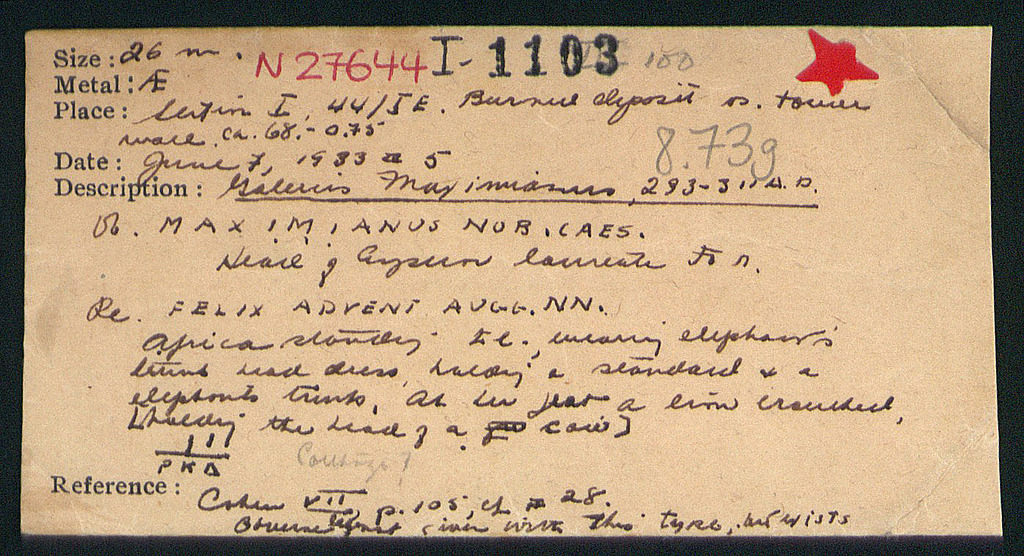 Size : 26 m. N 27644 I-1103 100
Metal : Æ
Place : Section I, 44/ΙΕ. Burned deposit o. tower
wall. ca. 68.-0.75
Date : June 7, 1933 # 5 8.73g
Description : Galerius Maximianus, 293-311 A.D.
Ob. MAXIMIANUS NOB. CAES.
Head of laureate to r.
Re. FELIX ADVENT AUGG. NN.
Africa standing t. l., wearing elephant's
trunk head dress, holding a standard & a
elephant's trunk. At her feet a lion crouched,
[holding the head of a cow]
PKΔ
Carthage ?
Reference : Cohen VII, p. 105, cf # 28.
Obverse not given with this type, but exists